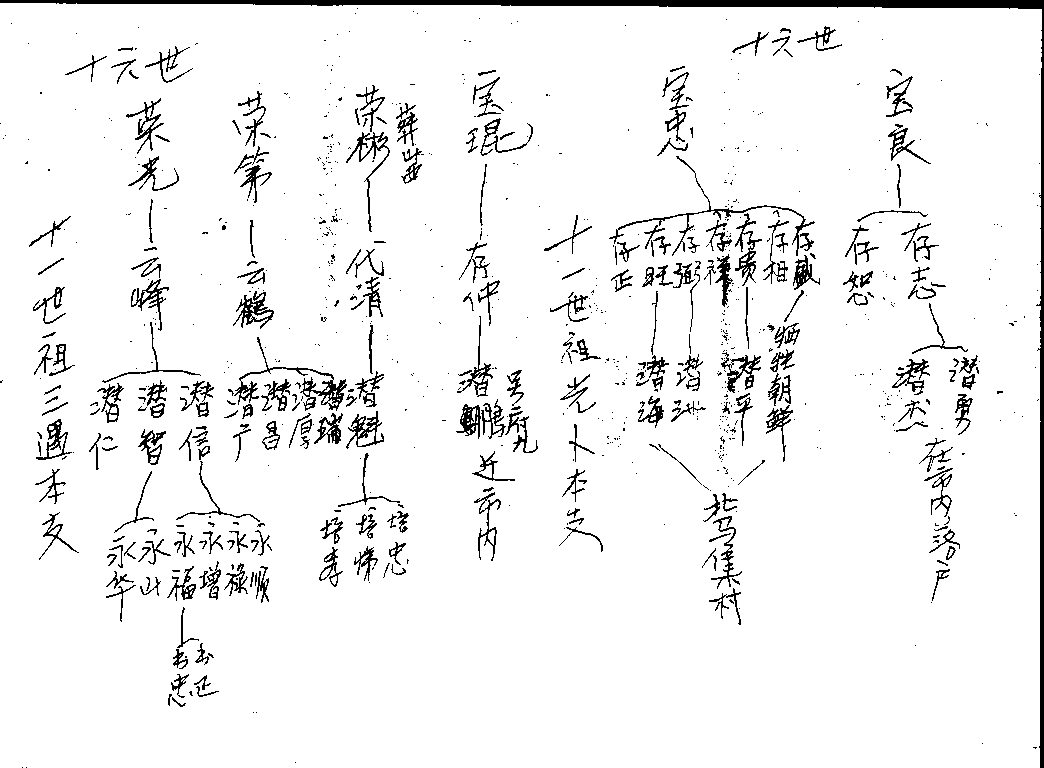 十六世
宝良
存志
存恕
潜勇
潜杰
在市内落户
宝忠
存盛
存相
存贵
存禄
存弼
存旺
存正
牺牲朝鲜
潜平
潜洲
潜海
北马集村
十一世祖光卜本支
宝琨
存仲
潜鹏
吴府九
近市内
十六世
荣彬
葬茔西
代清
潜魁
培忠
培悌
培孝
荣第
云鹤
潜瑞
潜厚
潜昌
潜广
荣光
云峰
潜信
潜智
潜仁
永顺
永禄
永增
永福
永山
永华
书延
书忠
十一世祖三遇本支